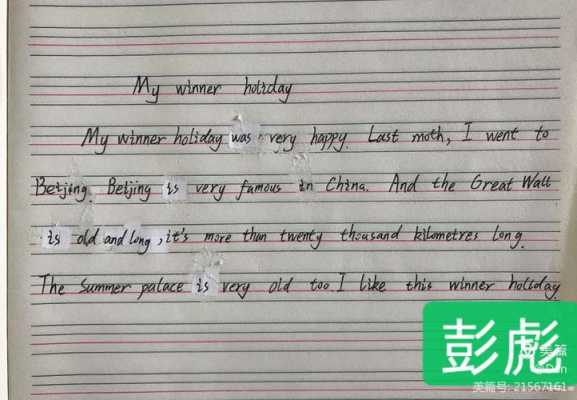 My winner holiday
My winner holiday was very happy. Last moth, I went to
Beijing. Beijing is very famous in China. And the Great Wall
is old and long, it's more than twenty thousand kilometres long.
The Summer palace is very old too. I like this winner holiday.
彭彪
美篇
美篇号: 21567161